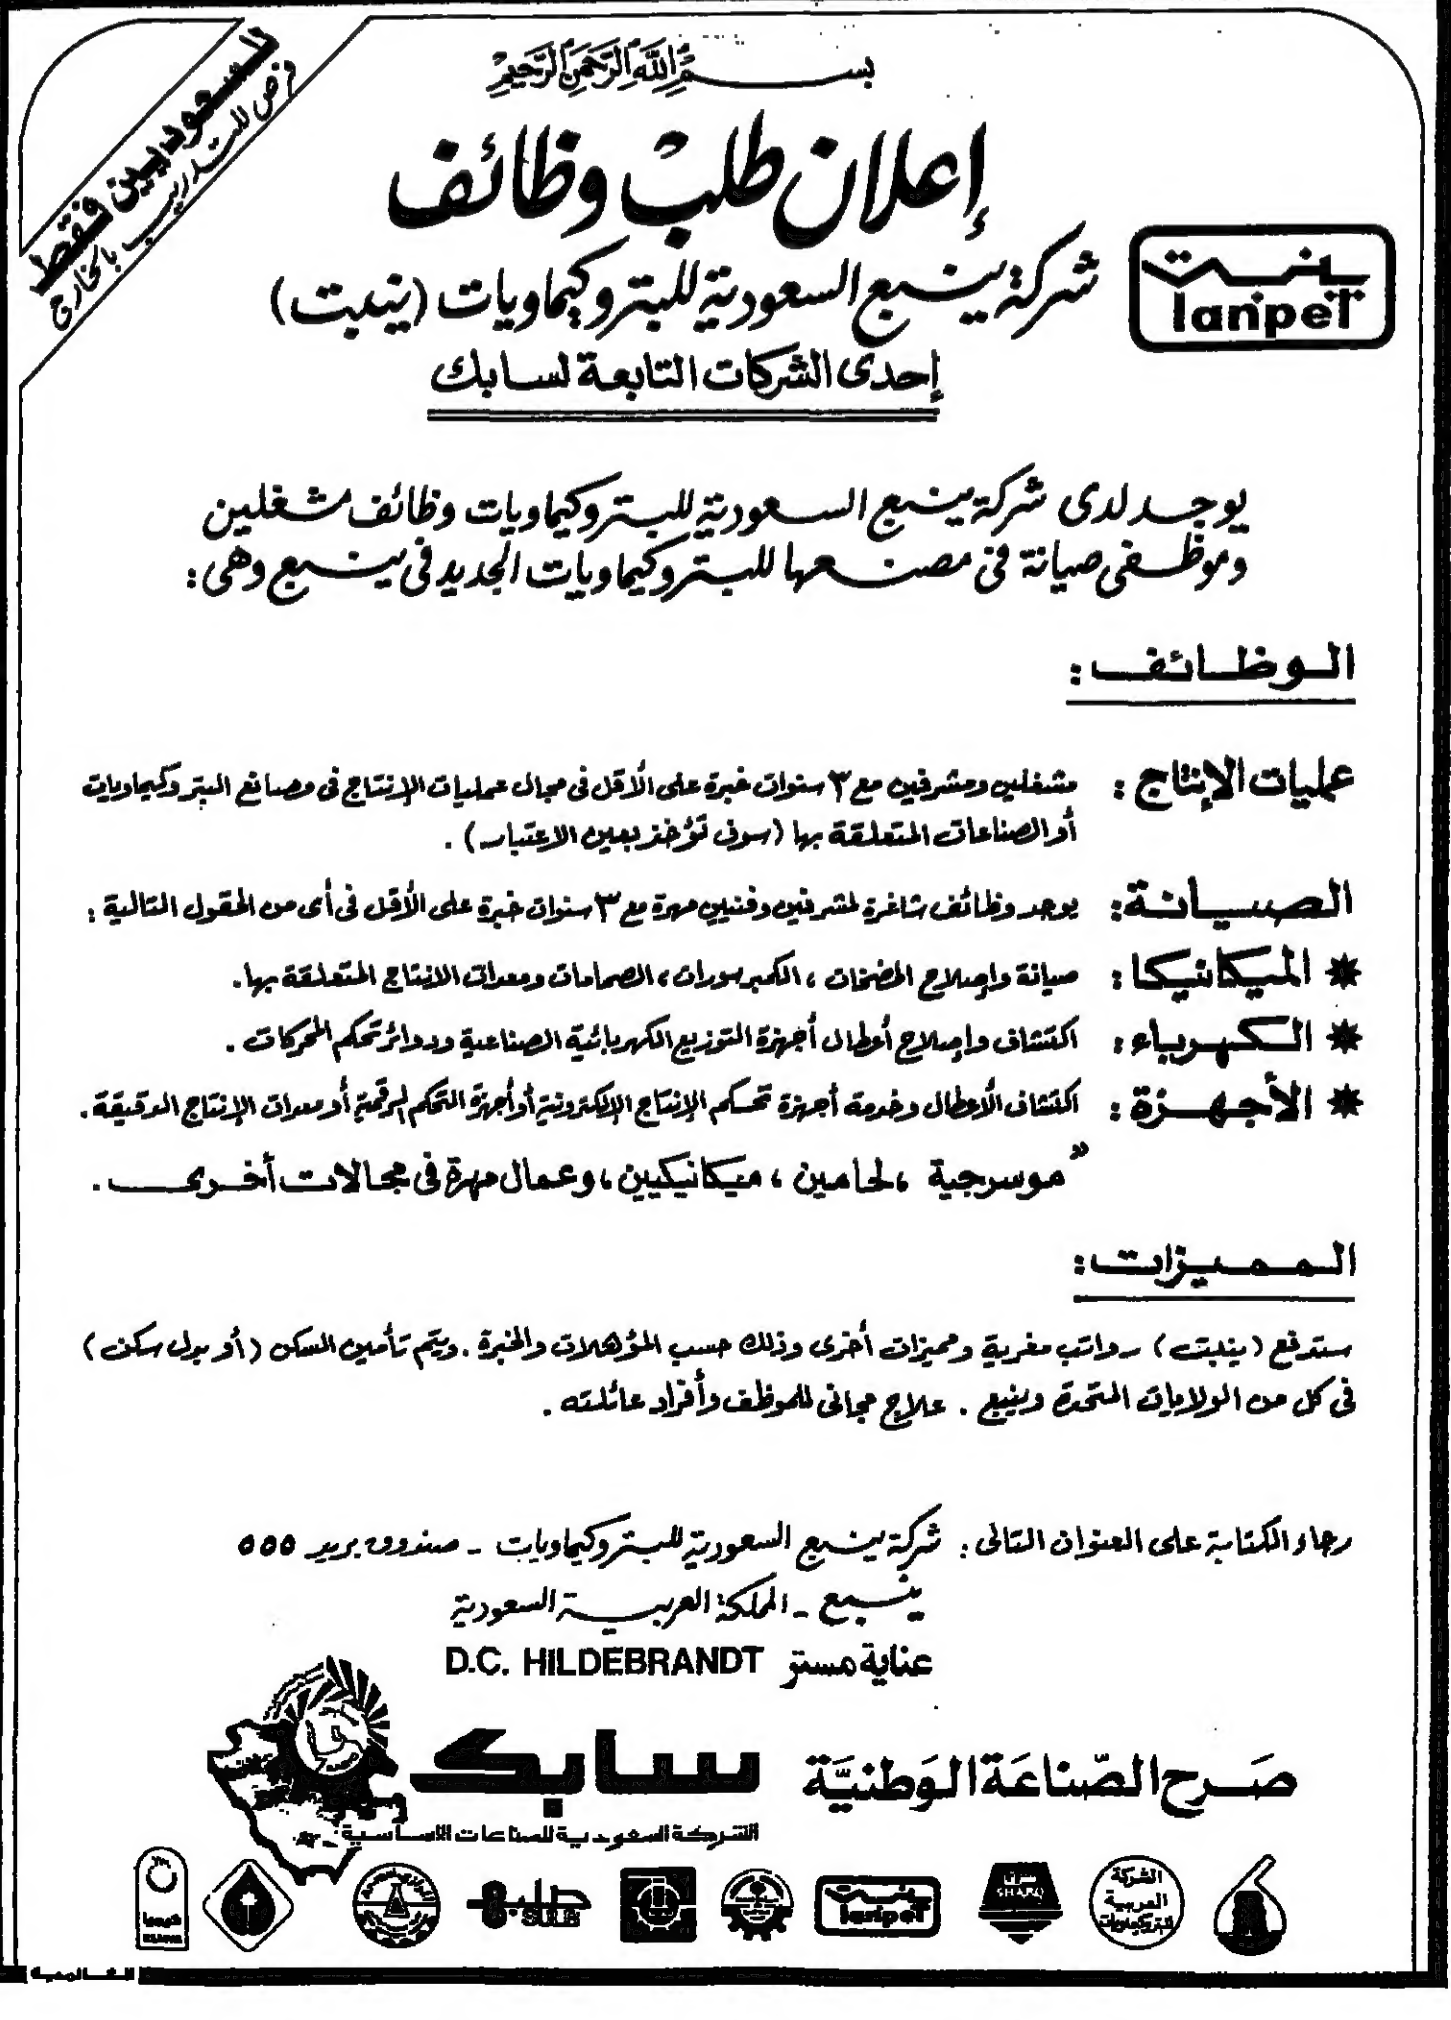 بسم الله الرحمن الرحيم
للسعوديين فقط
فرص للتدريب بالخارج
إعلان طلب وظائف
شركة ينبع السعودية للبتروكيماويات (ينبت)
ينبت
Ianpet
إحدى الشركات التابعة لسابك
يوجد لدى شركة ينبع السعودية للبتروكيماويات وظائف مشغلين
وموظفى صيانة فى مصنعها للبتروكيماويات الجديد فى ينبع وهى :
الوظائف :
عمليات الإنتاج : مشغلين ومشرفين مع ٣ سنوات خبرة على الأقل فى مجال عمليات الإنتاج فى مصانع البتروكيماويات
أو الصناعات المتعلقة بها (سوف تؤخذ بعين الاعتبار) .
الصيانة : يوجد وظائف شاغرة لمشرفين وفنيين مهرة مع ٣ سنوات خبرة على الأقل فى أى من الحقول التالية :
* الميكانيكا : صيانة وإصلاح المضخات ، الكمبرسورات ، الصمامات ومعدات الانتاج المتعلقة بها .
* الكهرباء : اكتشاف وإصلاح أعطال أجهزة التوزيع الكهربائية الصناعية ودوائر تحكم المحركات .
* الأجهزة : اكتشاف الأعطال وخدمة أجهزة تحكم الإنتاج الإلكترونية أو أجهزة التحكم الرقمية أو معدات الإنتاج الدقيقة .
" موسرجية ، لحامين ، ميكانيكيين ، وعمال مهرة فى مجالات أخرى .
المميزات :
ستدفع (ينبت) رواتب مغرية ومميزات أخرى وذلك حسب المؤهلات والخبرة . ويتم تأمين السكن (أو بدل سكن)
فى كل من الولايات المتحدة وينبع . علاج مجانى للموظف وأفراد عائلته .
رجاء الكتابة على العنوان التالى : شركة ينبع السعودية للبتروكيماويات - صندوق بريد ٥٥٥
ينبع - المملكة العربية السعودية
عناية مستر D.C. HILDEBRANDT
صَرح الصّناعَة الوَطنيَّة
سابك
الشركة السعودية للصناعات الاساسية
الشركة
العربية
للبتروكيماويات
شرق
SHARQ
ينبت
Ianpet
صلب
SULB
كيميا
KEMYA
العالمية